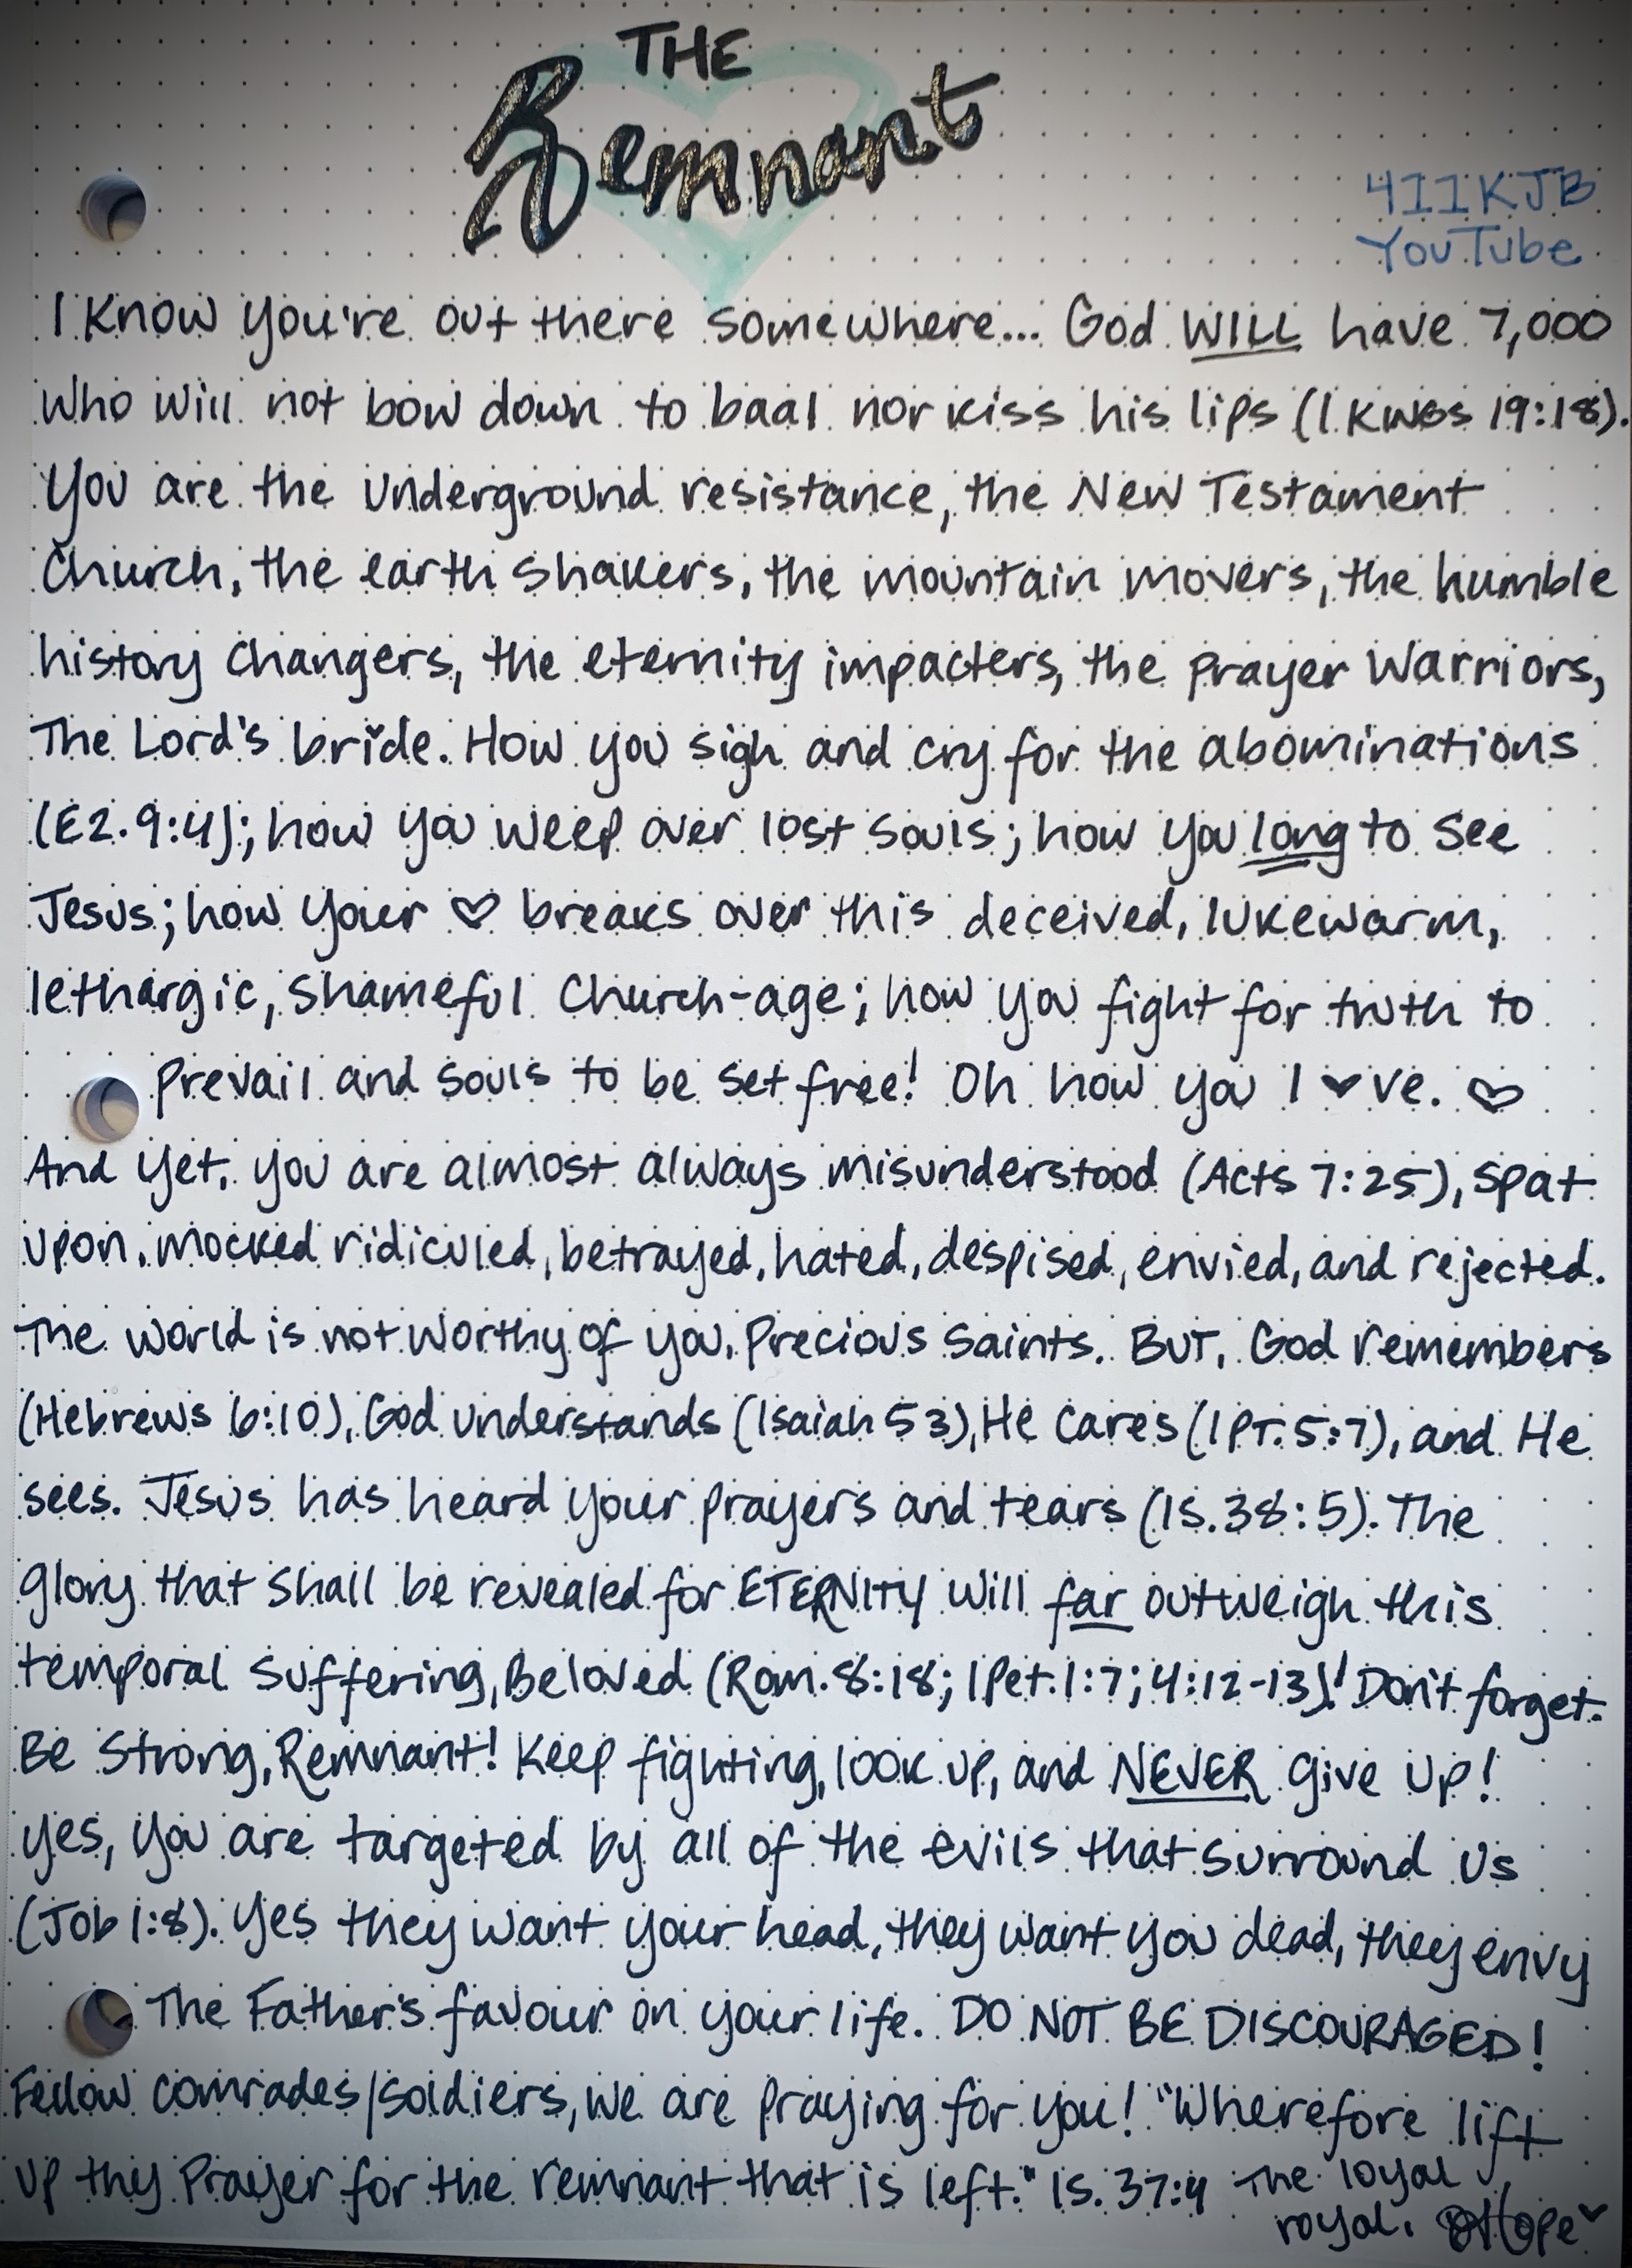 THE
Remnant
411KJB
YouTube
I know you're out there somewhere... God WILL have 7,000
who will not bow down to baal nor kiss his lips (1 Kings 19:18).
You are the underground resistance, the New Testament
Church, the earth shakers, the mountain movers, the humble
history changers, the eternity impacters, the prayer warriors,
The Lord's bride. How you sigh and cry for the abominations
(Ez. 9:4); how you weep over lost souls; how you long to see
Jesus; how your ♡ breaks over this deceived, lukewarm,
lethargic, shameful church-age; how you fight for truth to
prevail and souls to be set free! Oh how you l♥ve. ♡
And yet, you are almost always misunderstood (Acts 7:25), spat
upon, mocked ridiculed, betrayed, hated, despised, envied, and rejected.
The world is not worthy of you, Precious Saints. BUT, God remembers
(Hebrews 6:10), God understands (Isaiah 53), He cares (1 PT. 5:7), and He
sees. Jesus has heard your prayers and tears (Is. 38:5). The
glory that shall be revealed for ETERNITY will far outweigh this
temporal suffering, Beloved (Rom. 8:18; 1 Pet. 1:7; 4:12-13)! Don't forget.
Be strong, Remnant! Keep fighting, look up, and NEVER give up!
Yes, you are targeted by all of the evils that surround us
(Job 1:8). Yes they want your head, they want you dead, they envy
The Father's favour on your life. DO NOT BE DISCOURAGED!
Fellow comrades/soldiers, we are praying for you! "Wherefore lift
up thy prayer for the remnant that is left." Is. 37:4 The loyal
royal. Hope ♥